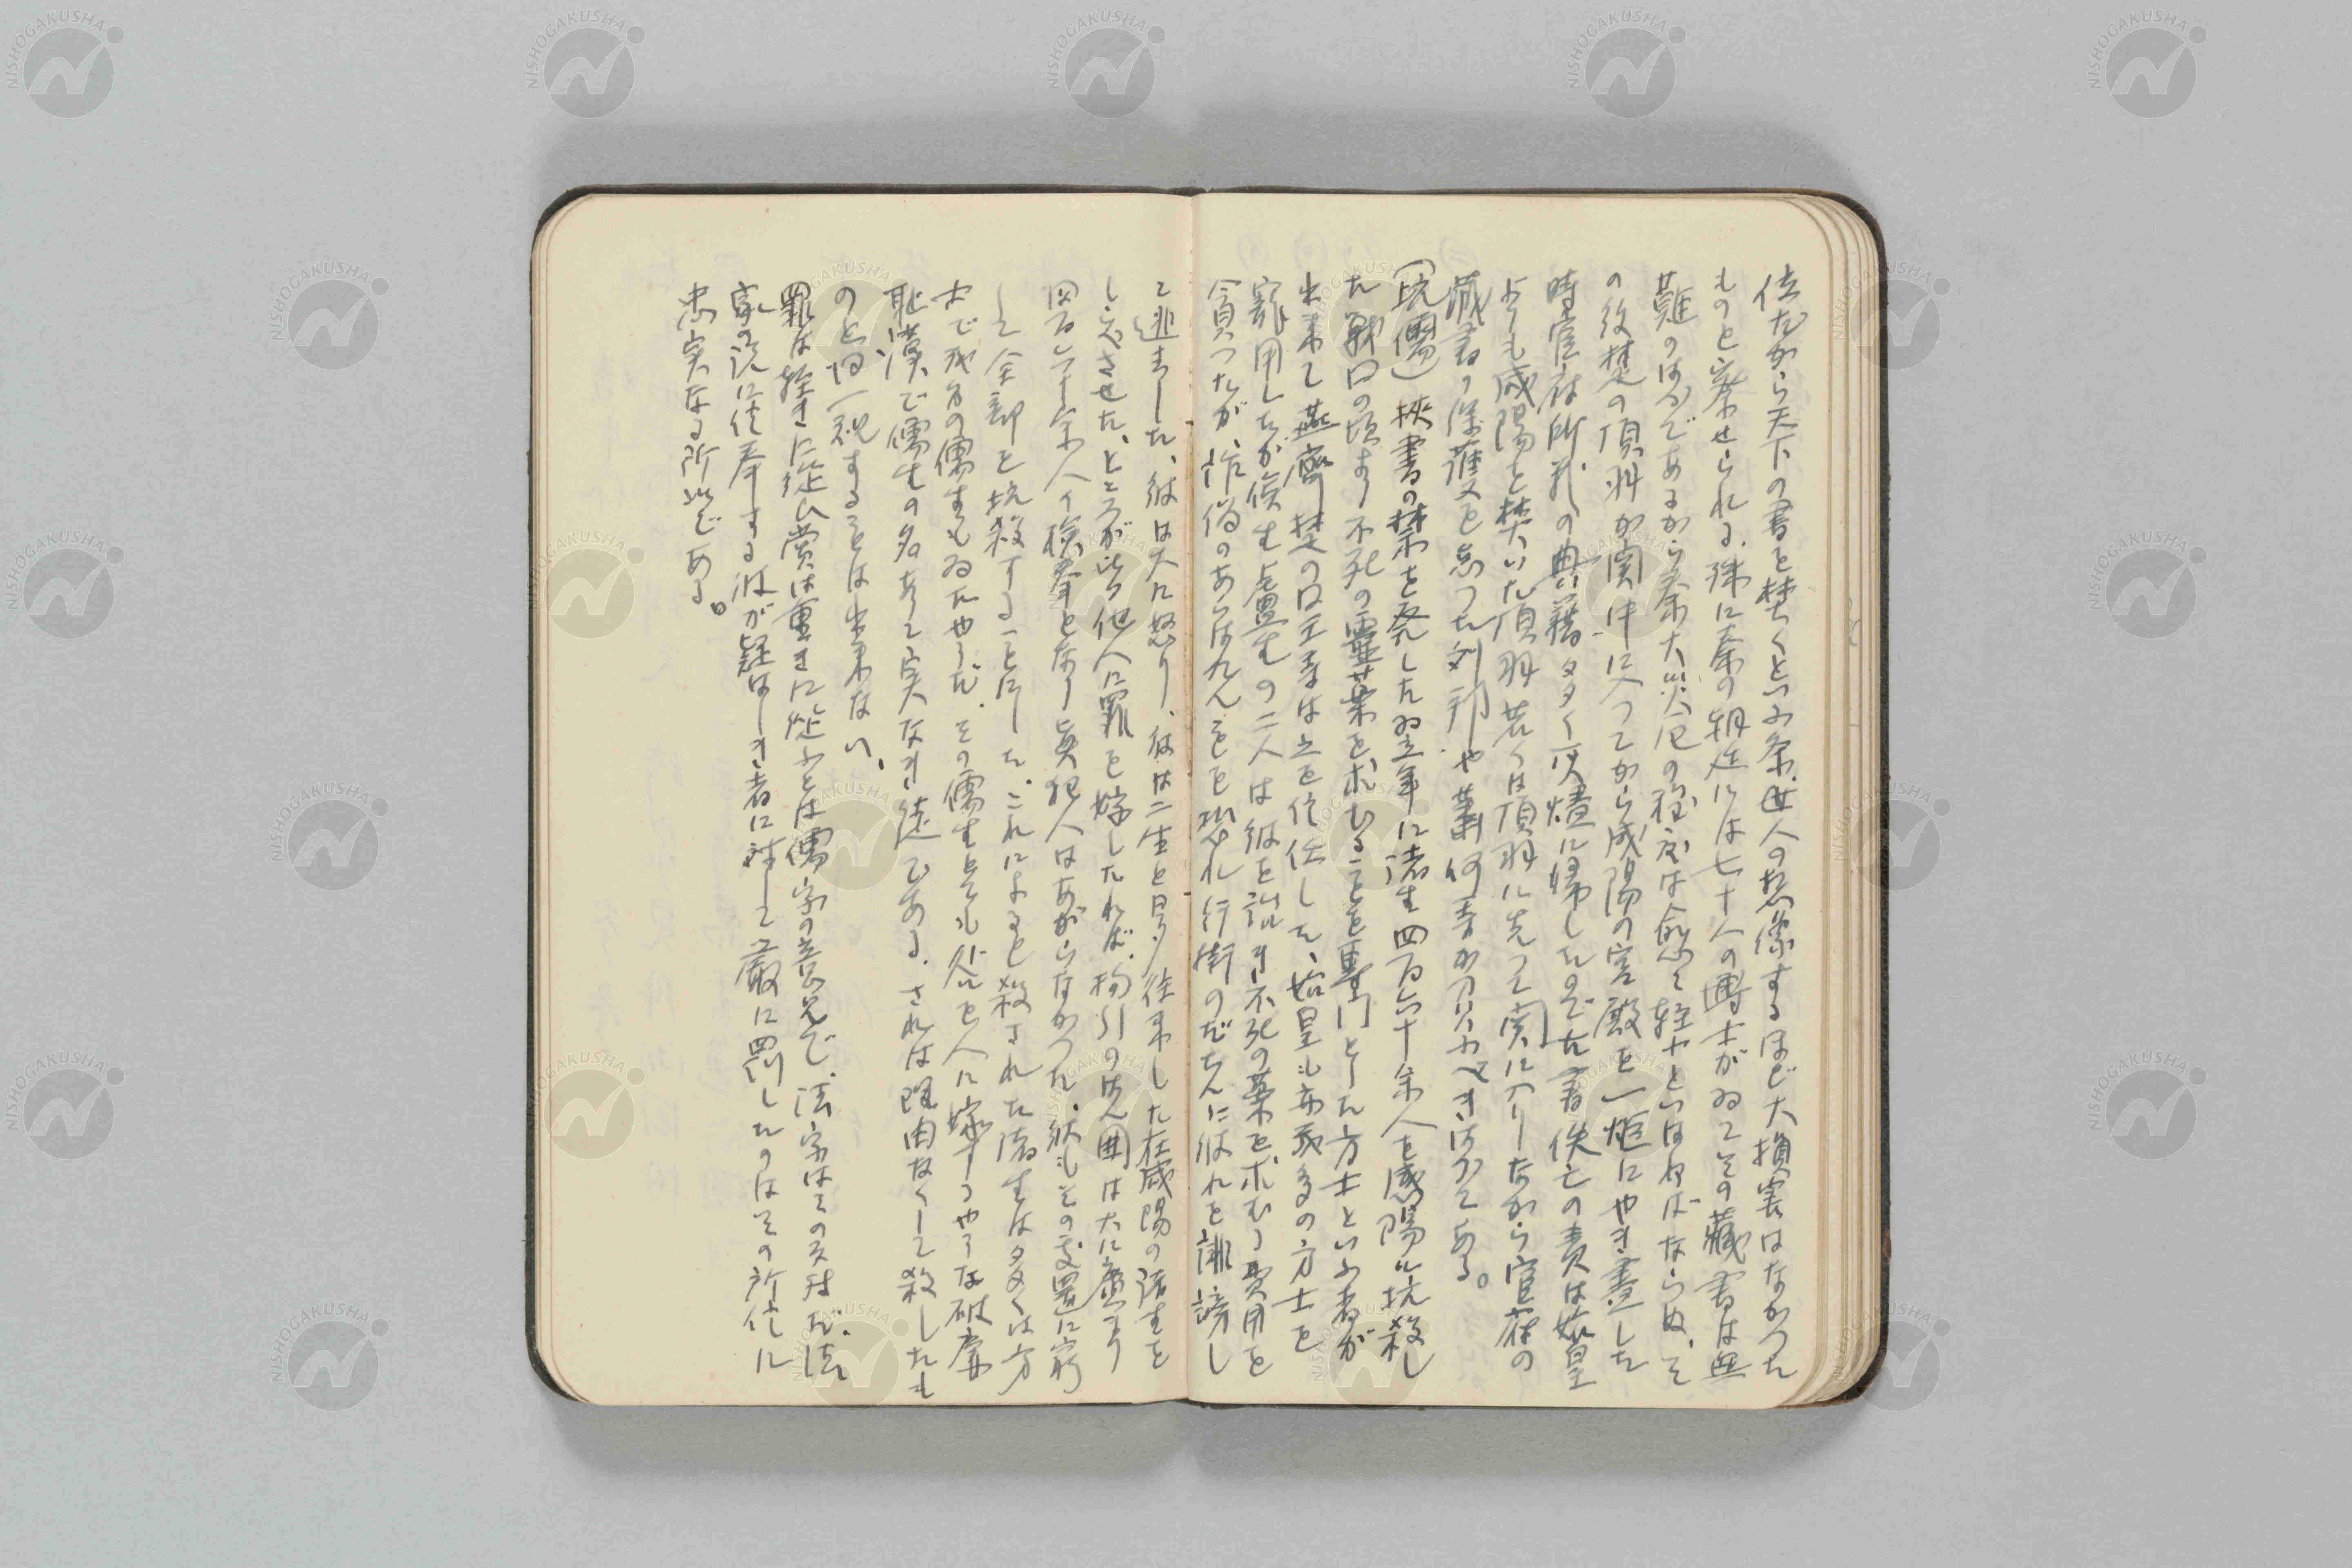 位だから天下の書を焚くといふ条、世人の想像するほど大損害はなかつた
ものと察せられる。殊に秦の朝廷には七十人の博士がゐてその蔵書は無
難のはずであるから秦火災厄の程度は愈々軽少といはねばならぬ、そ
の後楚の項羽が関中に入つてから咸陽の宮殿を一炬にやき尽した
時官府所蔵の典籍多く灰燼に帰したのでた書佚亡の責は始皇
よりも咸陽を焚いた項羽若くは項羽に先つて関に入りしながら官府の
蔵書の保護を怠つた劉邦や蕭何等が分つべきはずである。
(坑儒) 挟書の禁を発した翌年に諸生四百六十余人を咸陽に坑殺し
た戦国の頃より不死の霊薬を求むることを専門とした方士といふ者が
出来て燕齊楚の国王等は之を信任した、始皇も亦数多の方士を
寵用したが侯生盧生の二人は彼を訛き不死の薬を求むる費用を
貪つたが詐偽のあらはれんことを恐れ行街のだちんに彼れを誹謗し
て逃走した、彼は大に怒り、彼は二生と日夕往来した在咸陽の諸生を
し究させた、ところが皆他人に罪を嫁したれば、拘引の範囲は大に広まり
四百六十余人の検挙となり真犯人はあがらなかつた、彼もその処置に窮
して全部を坑殺することにした、これによると殺された諸生は多くは方
士で我方の儒生もゐたやうだ、その儒生とても分を人に嫁すつやうな破廉
恥漢で儒生の名あつて実なき徒である。されば理由なくして殺したも
のと同一視することは出来ない、
罪は軽きに従ひ賞は重きに従ふとは儒家の意見で、法家はその反対だ、法
家の説に信奉する彼が疑はしき者に対して厳に罰したのはその所信に
忠実なる所以である。